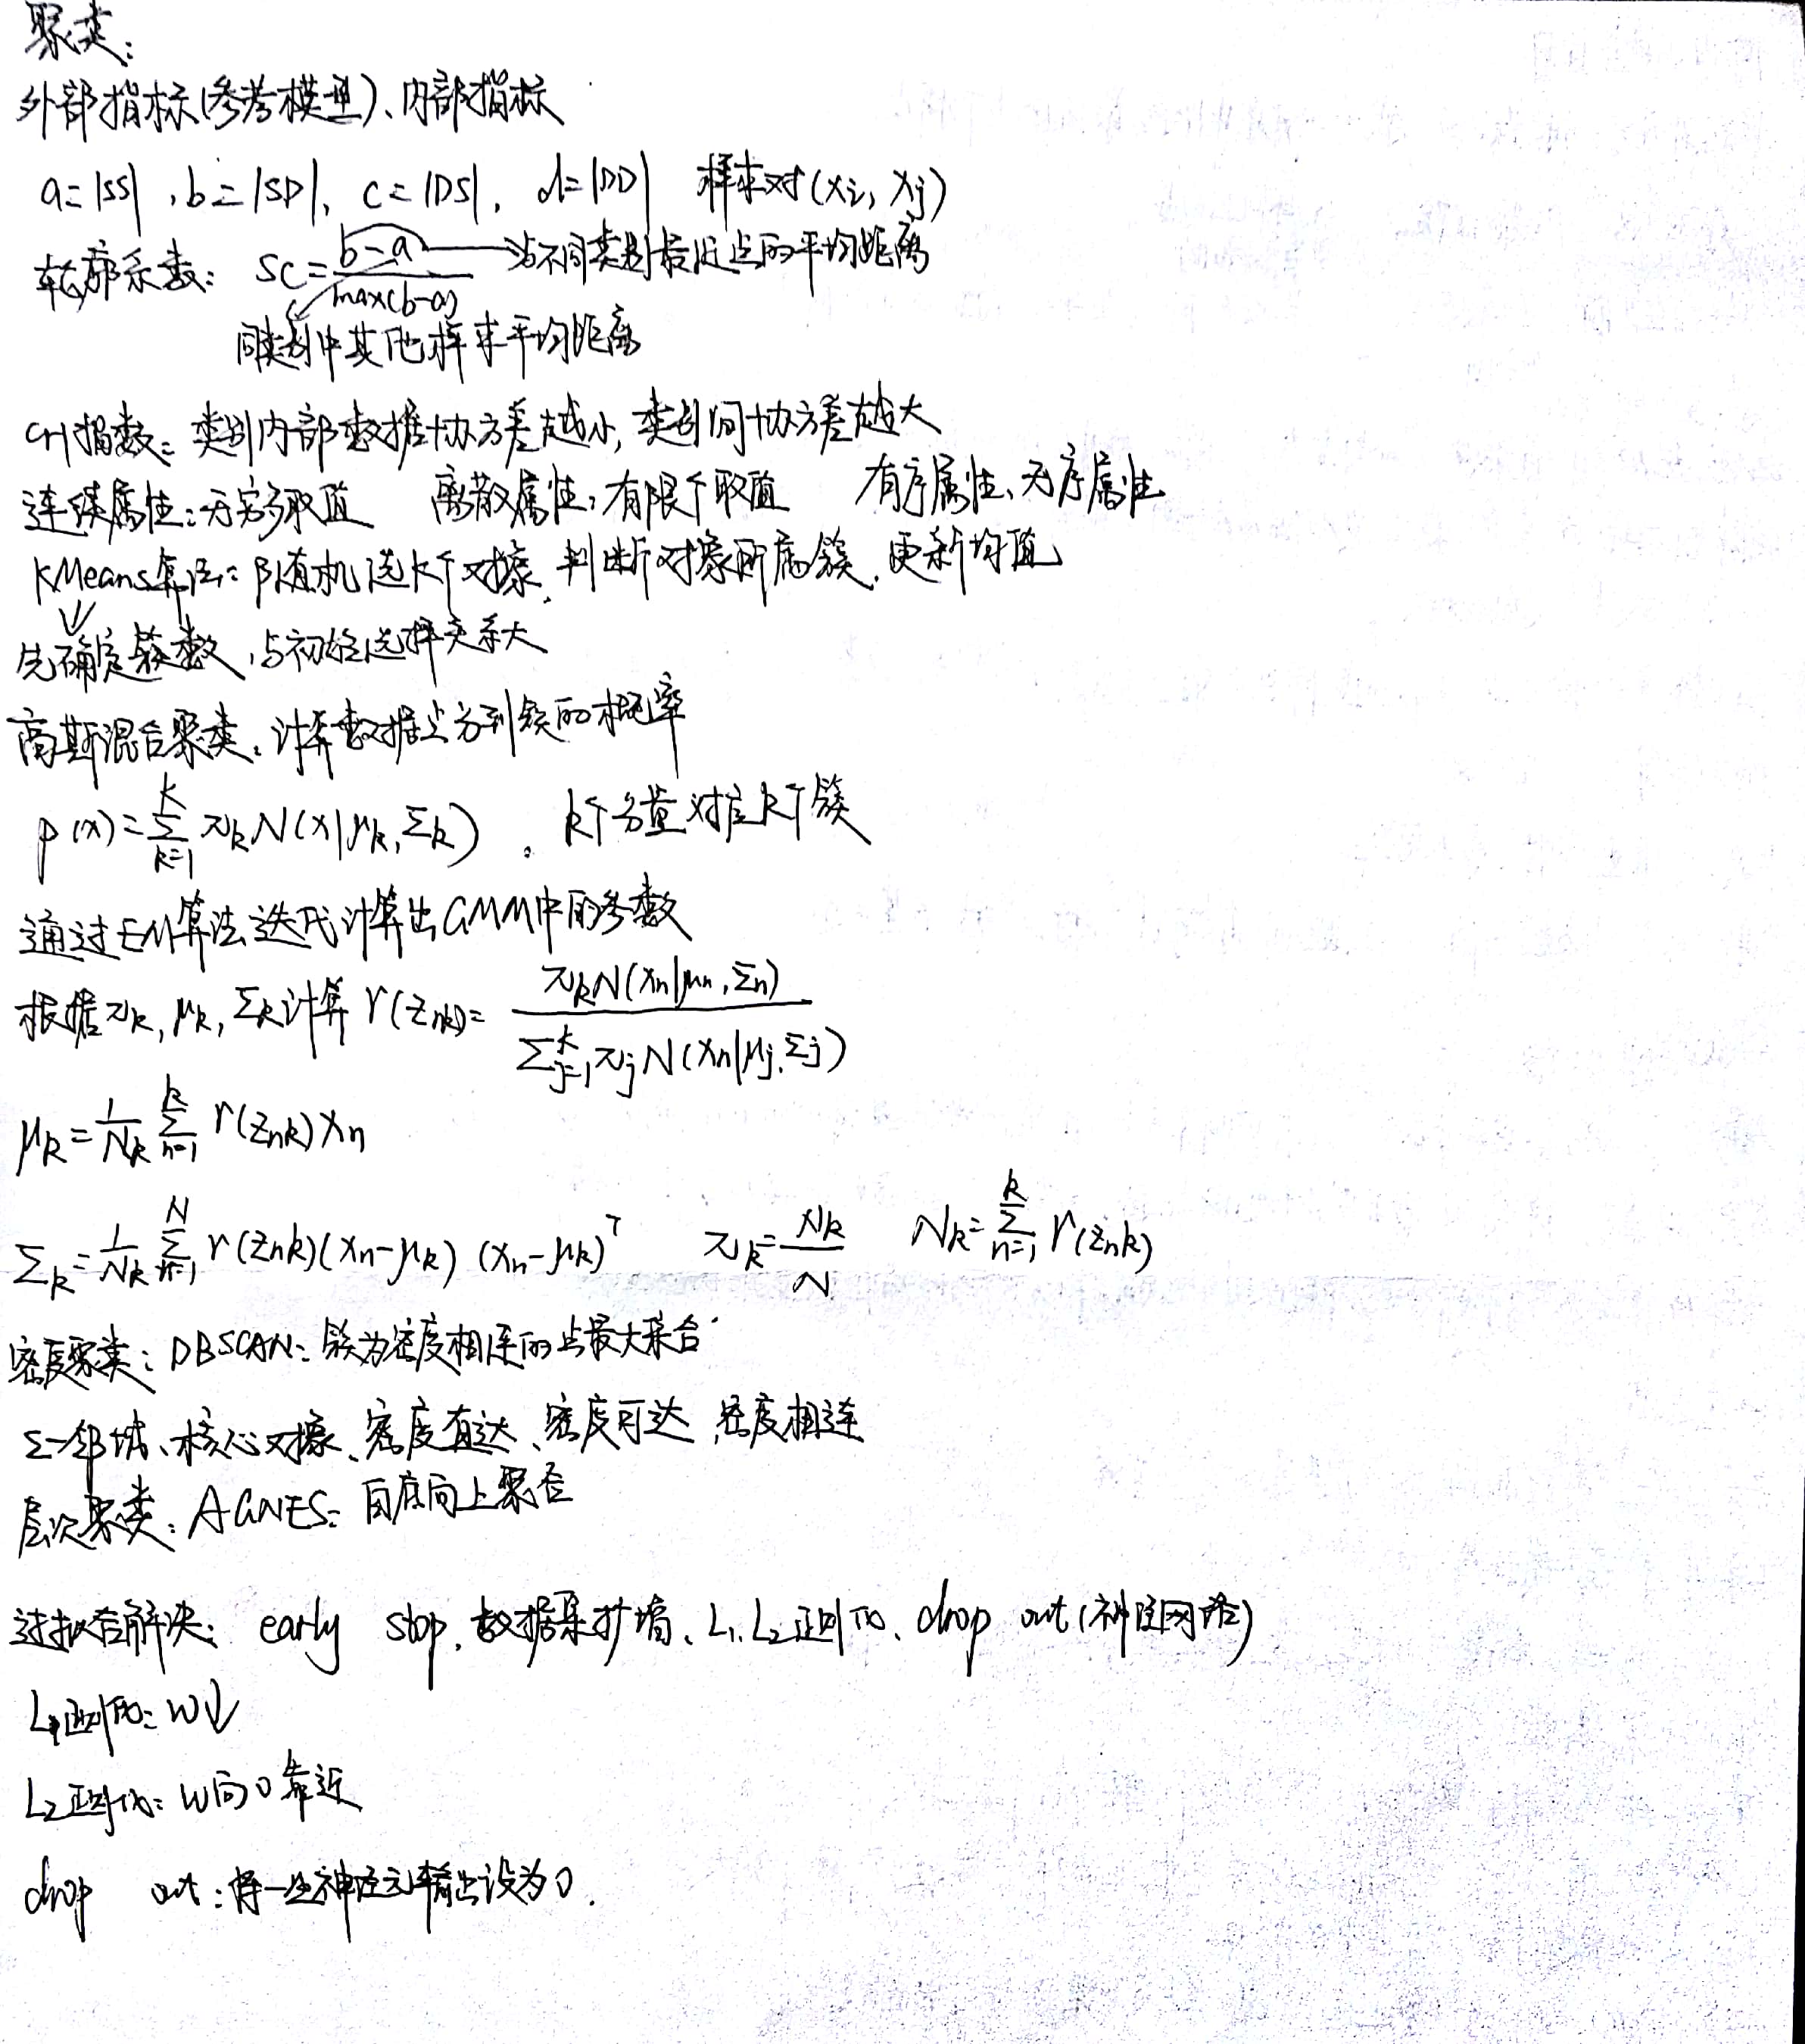 聚类:
外部指标(参考模型)、内部指标
a=|SS|,b=|SD|, c=|DS|, d=|DD| 样本对(xi, xj)
轮廓系数: SC=(b-a)/max(b-a) 与不同类别最近点的平均距离
同类别中其他样本平均距离
CH指数: 类别内部数据协方差越小, 类别间协方差越大
连续属性:无穷多取值 离散属性:有限个取值 有序属性、无序属性
KMeans算法: 随机选k个对象, 判断对象所属簇, 更新均值
先确定簇数,与初始选择关系大
高斯混合聚类:计算数据点分到簇的概率
p(x)=∑_{k=1}^{K} πk N(x|μk,Σk) 。 k个分量对应k个簇
通过EM算法迭代计算出GMM中的参数
根据πk, μk, Σk计算 γ(znk)= πkN(xn|μn,Σn) / ∑_{j=1}^{k} πj N(xn|μj,Σj)
μk= 1/Nk ∑_{n=1}^{k} γ(znk)xn
Σk= 1/Nk ∑_{n=1}^{N} γ(znk)(xn-μk)(xn-μk)^T πk= Nk/N Nk=∑_{n=1}^{k} γ(znk)
密度聚类: DBSCAN: 簇为密度相连的点最大集合
Σ-邻域、核心对象、密度直达、密度可达,密度相连
层次聚类: AGNES: 自底向上聚合
过拟合解决: early stop, 数据集扩增、L1,L2正则化、drop out(神经网络)
L1正则化: w↓
L2正则化: w向0靠近
drop out:将一些神经元输出设为0.